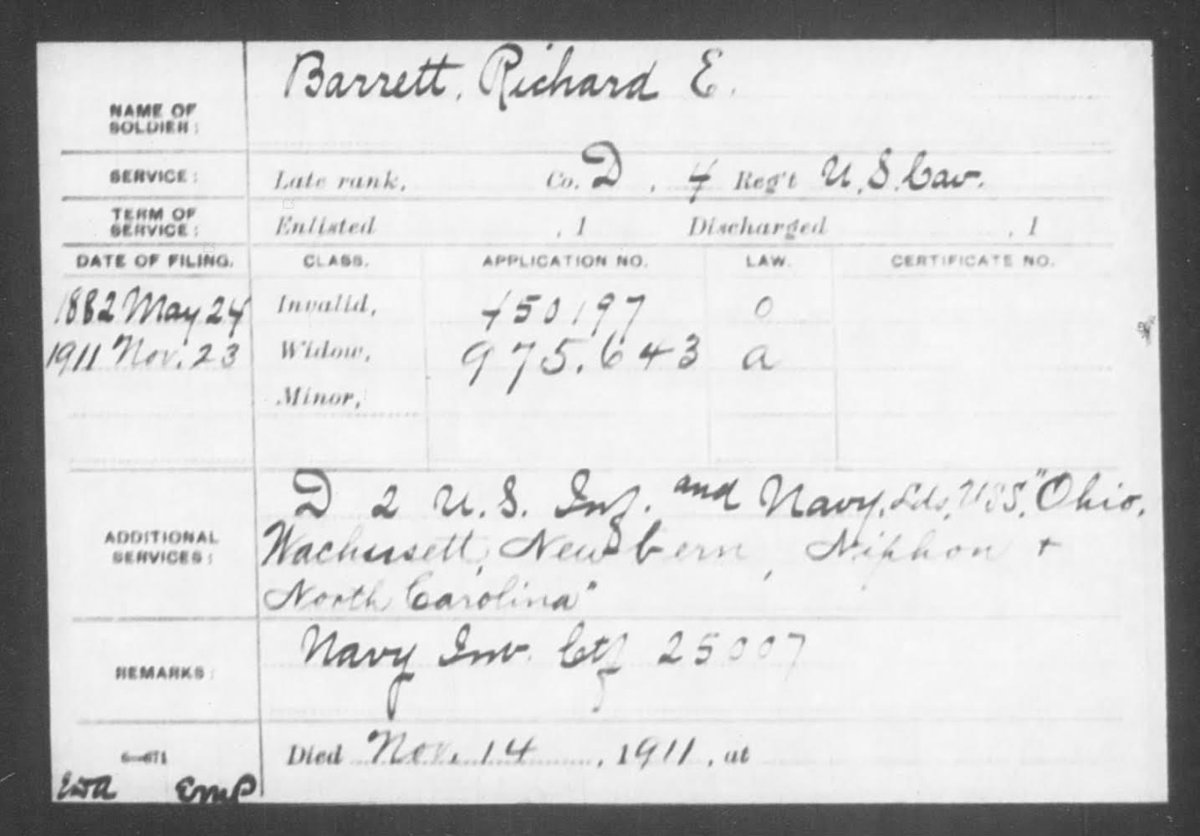 Barrett, Richard E.
NAME OF
SOLDIER:
SERVICE: Late rank, Co. D, 4 Reg't U.S. Cav.
TERM OF
SERVICE: Enlisted , 1 Discharged , 1
DATE OF FILING. CLASS. APPLICATION NO. LAW. CERTIFICATE NO.
1882 May 24 Invalid, 450197 O
1911 Nov. 23 Widow, 975.643 a
Minor,
D 2 U.S. Inf. and Navy, Lds, USS, "Ohio,
ADDITIONAL
SERVICES: Wachusett, New bern, Niphon +
North Carolina"
Navy Inv. Ctf 25007
REMARKS:
6—671 Died Nov. 14, 1911, at
EMP